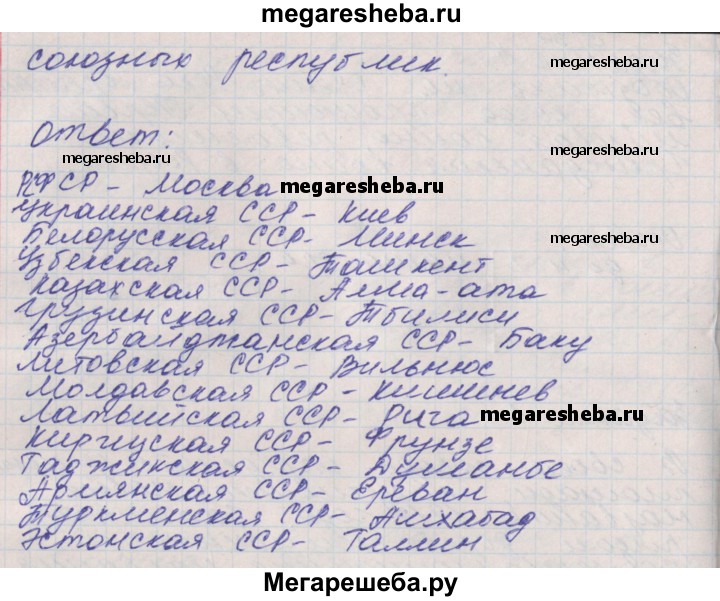 megaresheba.ru
союзных республик.
megaresheba.ru
ответ:
megaresheba.ru
megaresheba.ru
РФСР - Москва megaresheba.ru
Украинская ССР - Киев
Белорусская ССР - Минск
megaresheba.ru
Узбекская ССР - Ташкент
Казахская ССР - Алма-ата
Грузинская ССР - Тбилиси
Азербайджанская ССР - Баку
Литовская ССР - Вильнюс
Молдавская ССР - Кишинев
Латвийская ССР - Рига megaresheba.ru
Киргизская ССР - Фрунзе
Таджикская ССР - Душанбе
Армянская ССР - Ереван
Туркменская ССР - Ашхабад
Эстонская ССР - Таллин
Мегарешеба.ру